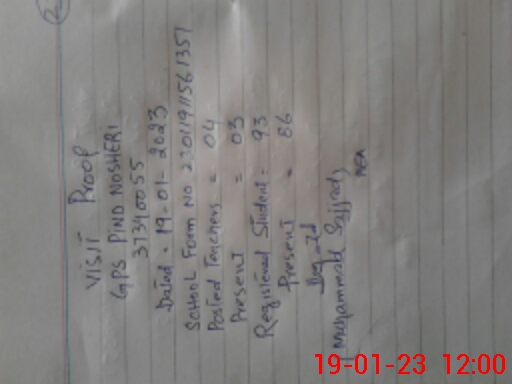 VISIT PROOF
GPS PIND NOSHERI
37340055
Dated = 19-01-2023
SCHOOL FORM NO 23011911561351
Posted Teachers = 04
Present = 03
Registered Student = 93
Present = 86
Muhammad Sajjad
MEA
19-01-23 12:00